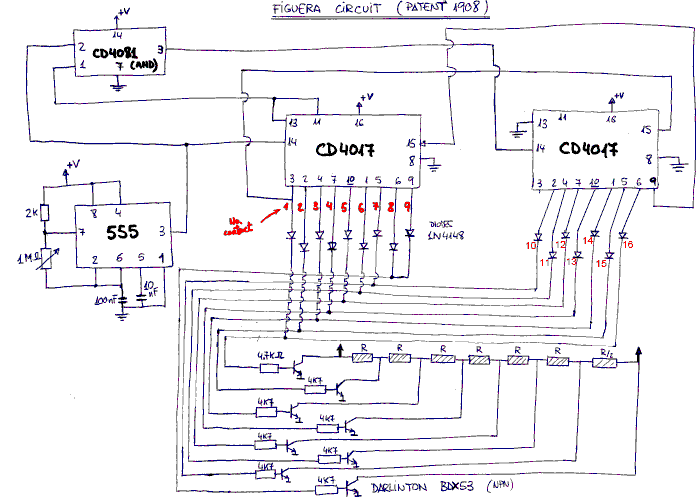 FIGUERA CIRCUIT (PATENT 1908)
+V
14
2
CD4081
3
1
7 (AND)
+V
+V
13
11
16
14
CD4017
15
8
3 2 4 7 10 1 5 6 9
13
11
16
15
14
CD4017
8
3 2 4 7 10 1 5 6 9
1 2 3 4 5 6 7 8 9
No
contact
DIODES
1N4148
10 11 12 13 14 15 16
+V
2K
8 4
7
555
3
1MΩ
2 6 5 1
100nF
10
nF
R R R R R R R/2
4,7KΩ
4K7
4K7
4K7
4K7
4K7
4K7
4K7
DARLINTON BDX53 (NPN)